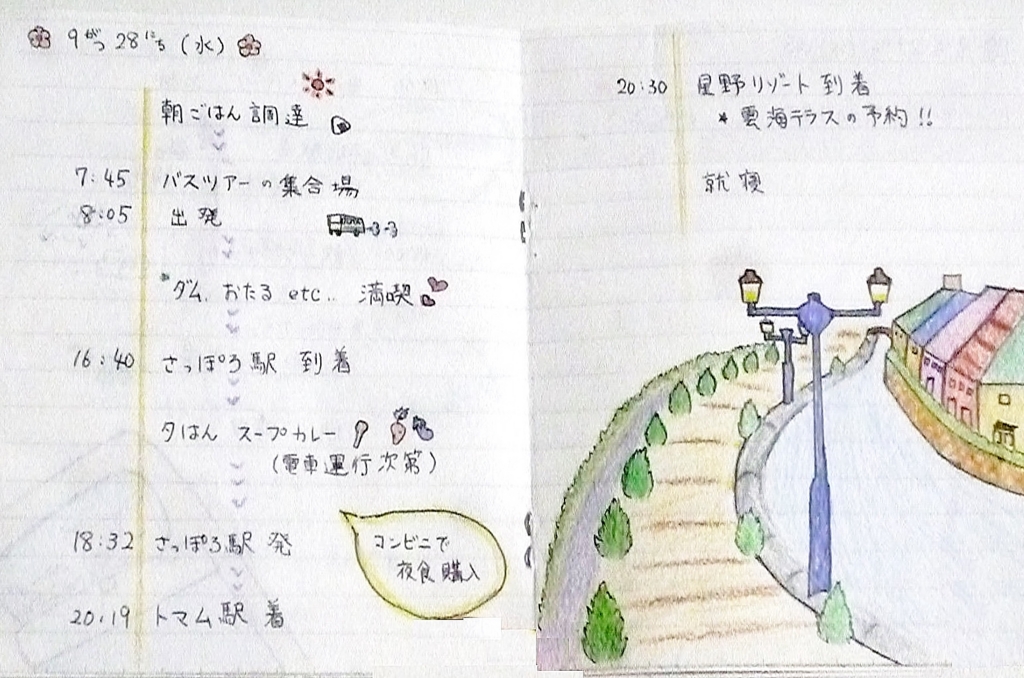 9がつ 28にち (水)
朝ごはん調達
7:45 バスツアーの集合場
8:05 出発
ダム、おたる etc.. 満喫
16:40 さっぽろ駅 到着
夕はん スープカレー
(電車運行次第)
18:32 さっぽろ駅 発
コンビニで
夜食購入
20:19 トマム駅 着
20:30 星野リゾート到着
* 雲海テラスの予約!!
就寝